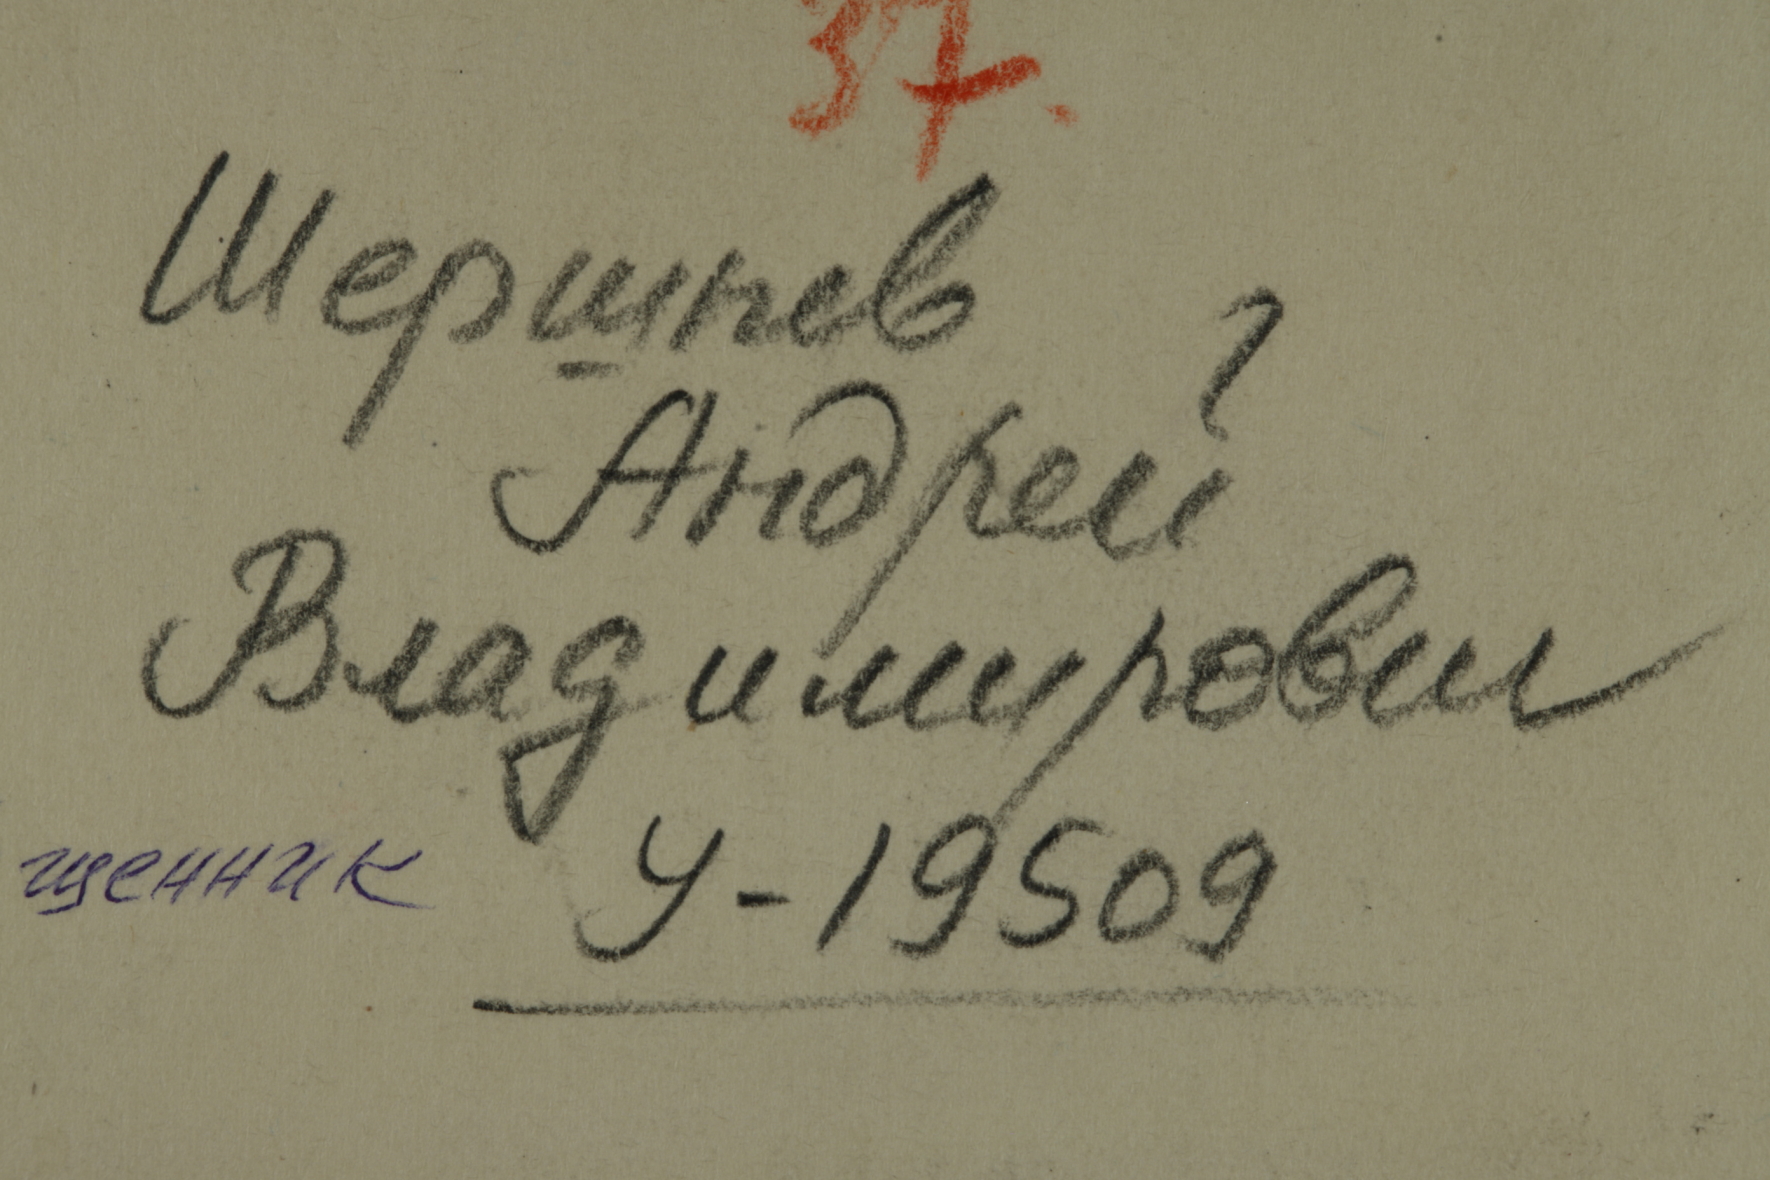 37.
Шершнев
Андрей
Владимирович
щенник
У-19509